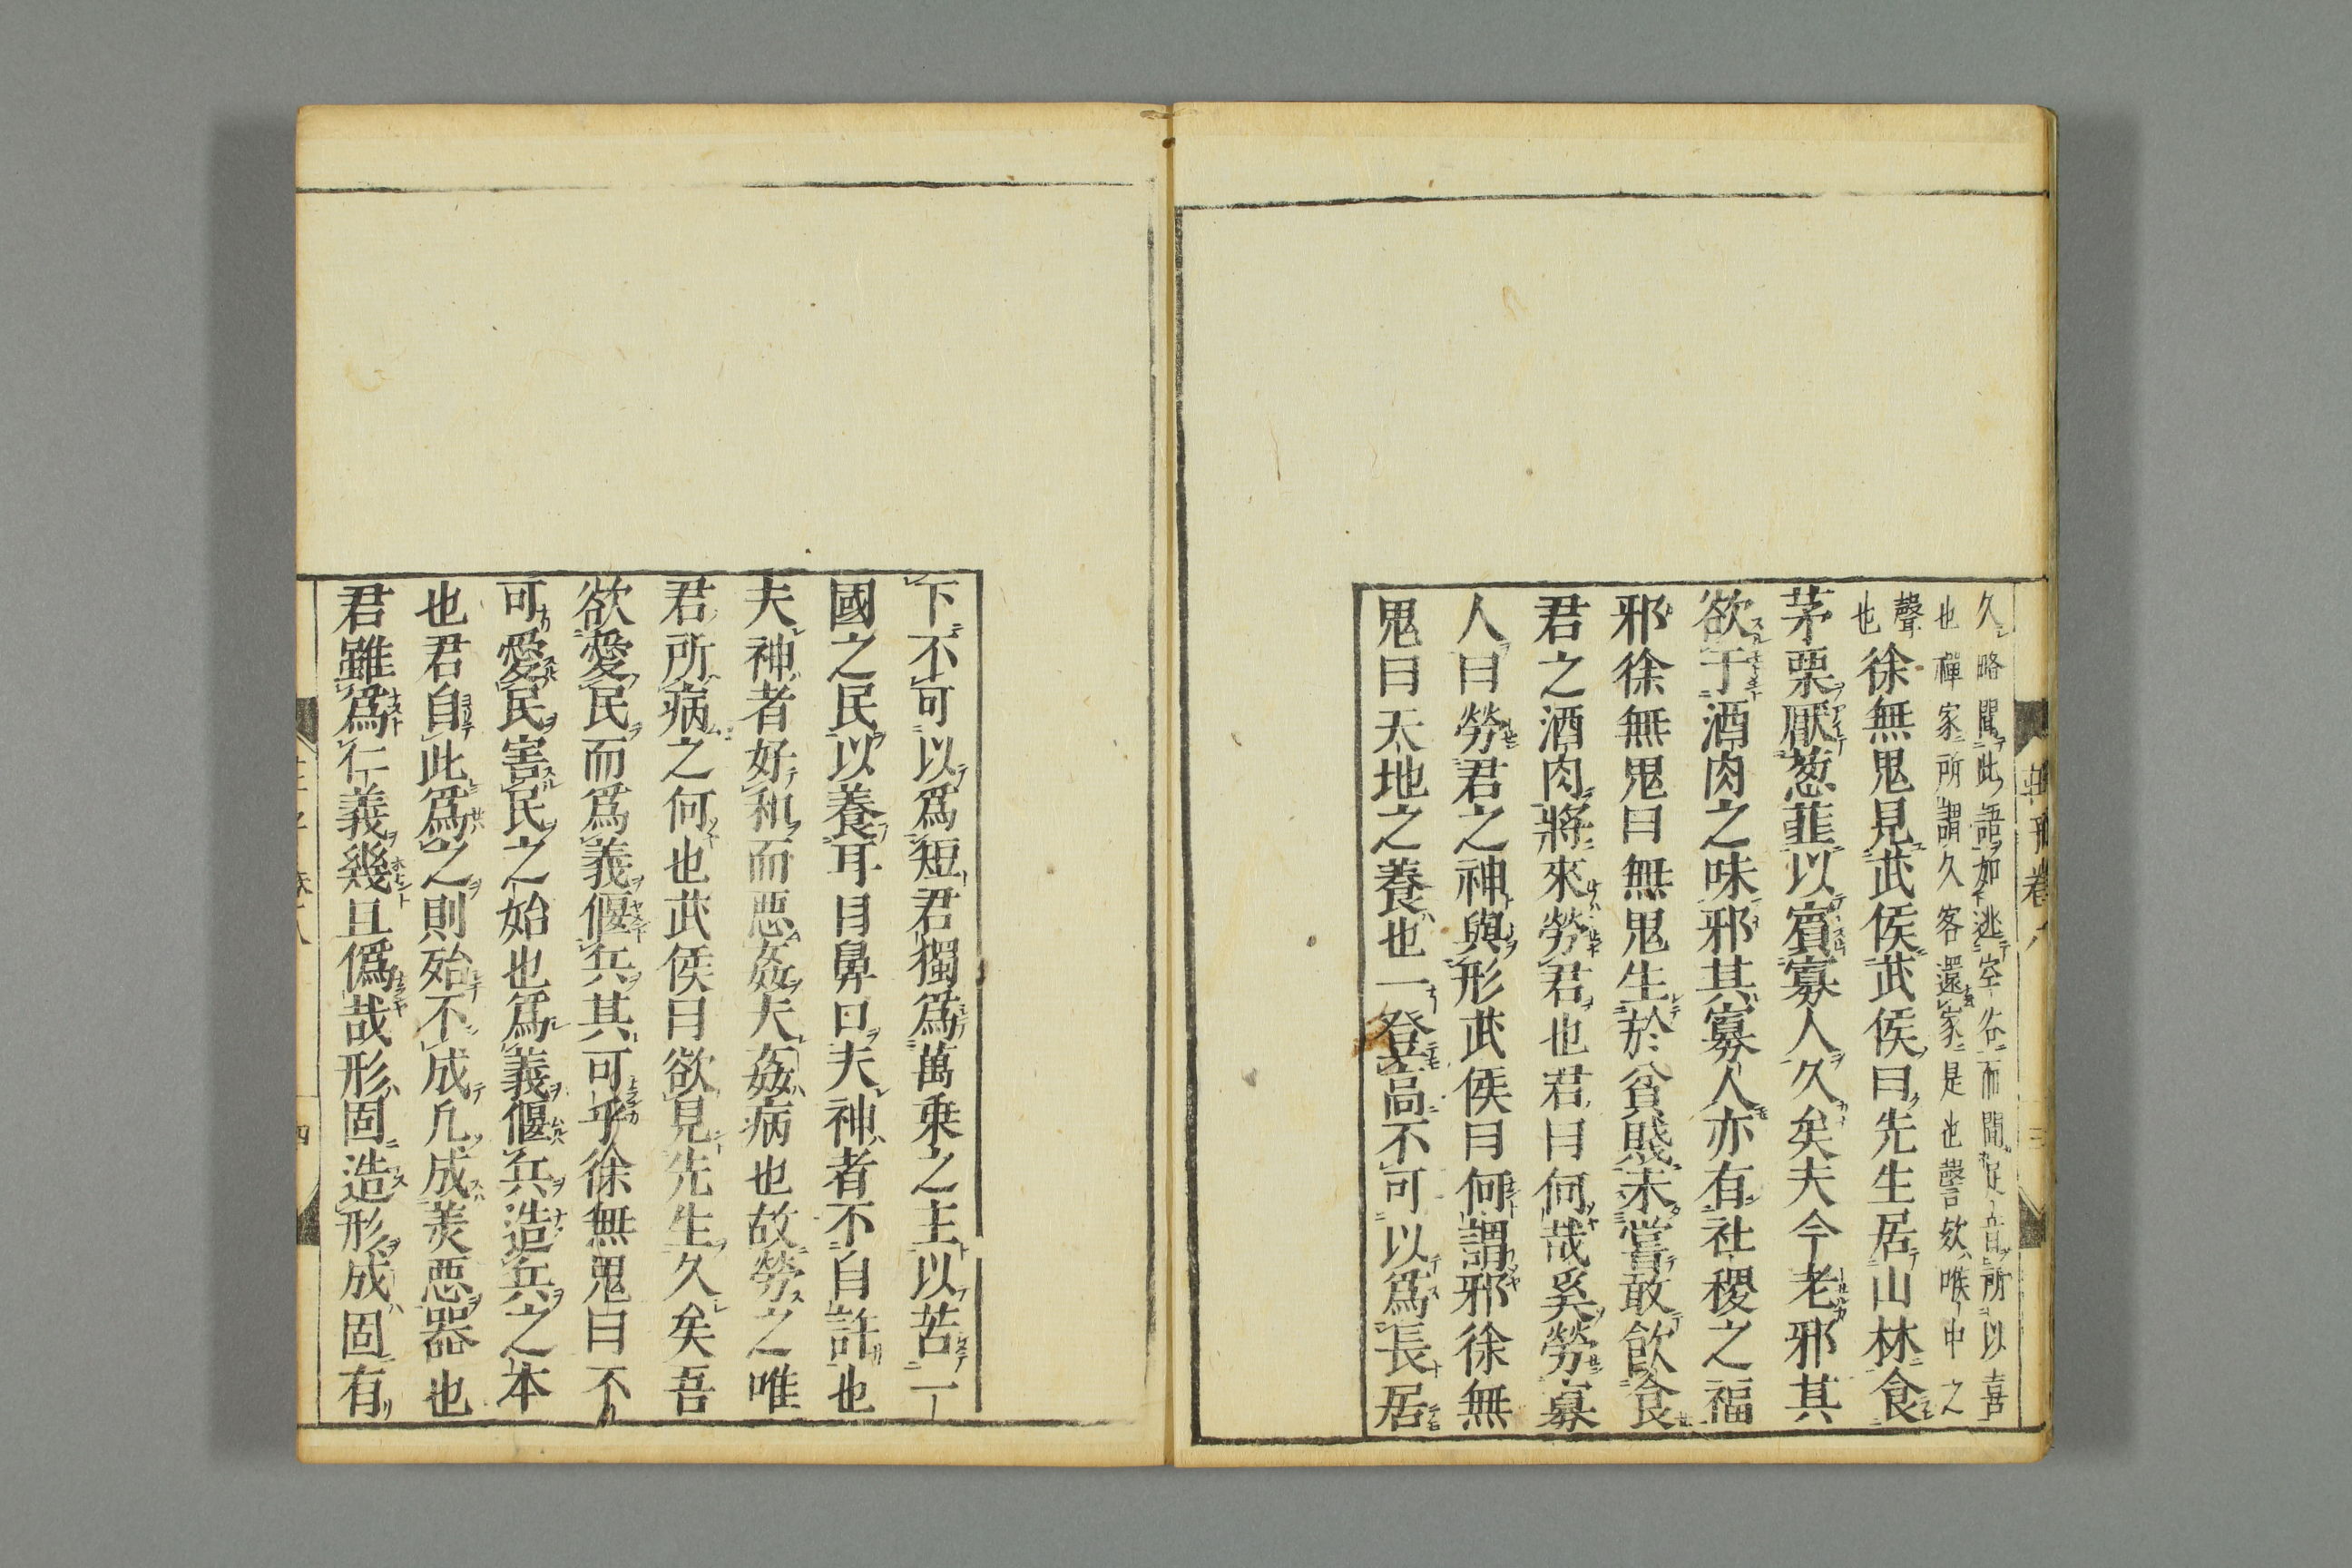 久略聞此語如逃空谷而聞足音所以喜
也禪家所謂久客還家是也謦欬喉中之
聲也
徐無鬼見武侯武侯曰先生居山林食
茅栗厭葱韮以賓寡人久矣夫今老邪其
欲干酒肉之味邪其寡人亦有社稷之福
邪徐無鬼曰無鬼生於貧賤未嘗敢飲食
君之酒肉將來勞君也君曰何哉奚勞寡
人曰勞君之神與形武侯曰何謂邪徐無
鬼曰天地之養也一登高不可以爲長居
下不可以爲短君獨爲萬乗之主以苦一
國之民以養耳目鼻口夫神者不自許也
夫神者好和而惡姦夫姦病也故勞之唯
君所病之何也武侯曰欲見先生久矣吾
欲愛民而爲義偃兵其可乎徐無鬼曰不
可愛民害民之始也爲義偃兵造兵之本
也君自此爲之則殆不成凡成美惡器也
君雖爲仁義幾且僞哉形固造形成固有